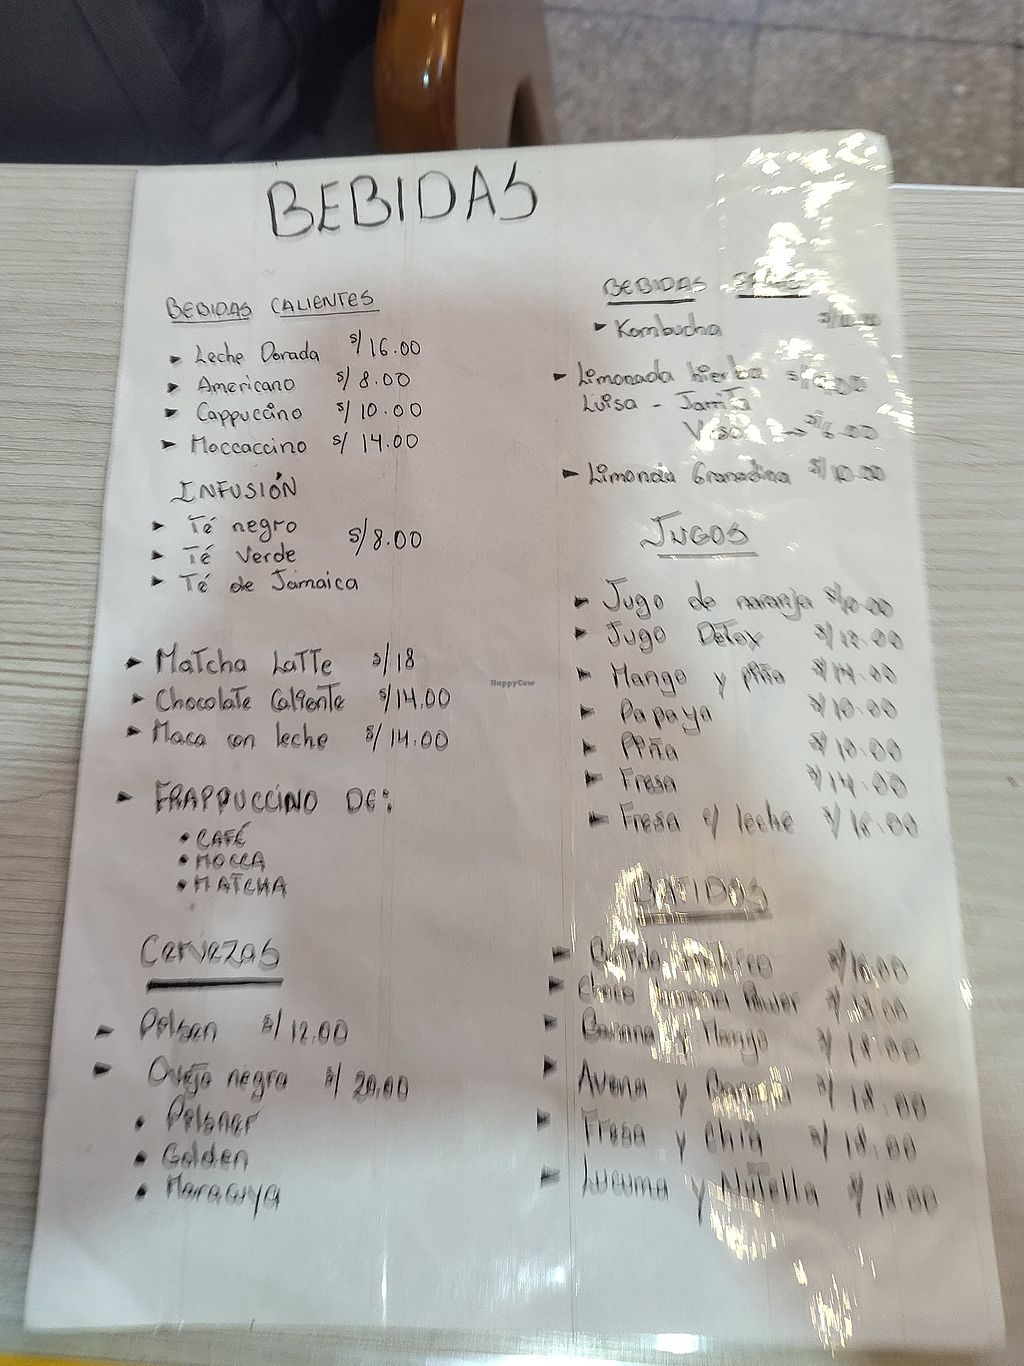 BEBIDAS
BEBIDAS CALIENTES
Leche Dorada S/16.00
Americano S/ 8.00
Cappuccino S/ 10.00
Moccaccino S/ 14.00
INFUSIÓN
Té negro
Té Verde S/8.00
Té de Jamaica
Matcha Latte S/18
Chocolate Caliente S/14.00
Maca con leche S/ 14.00
FRAPPUCCINO DE:
CAFÉ
MOCCA
MATCHA
Cervezas
Pilsen S/12.00
Oveja negra S/ 20.00
Pilsner
Golden
Maracuya
BEBIDAS
Kombucha
Limonada hierba
Luisa - Jarrita
Vaso → S/6.00
Limonda Granadina S/10.00
JUGOS
Jugo de naranja S/10.00
Jugo Detox S/12.00
Mango y piña S/14.00
Papaya S/10.00
Piña S/10.00
Fresa S/14.00
Fresa c/ leche S/18.00
BATIDOS
S/16.00
Choco Banana Power S/18.00
Banana y Mango S/18.00
Avena y Banana S/18.00
Fresa y Chia S/18.00
Lucuma y Nutella S/18.00
HappyCow